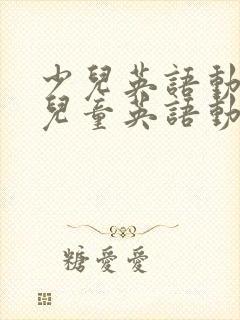 少兒英語動
兒童英語動
糖愛愛